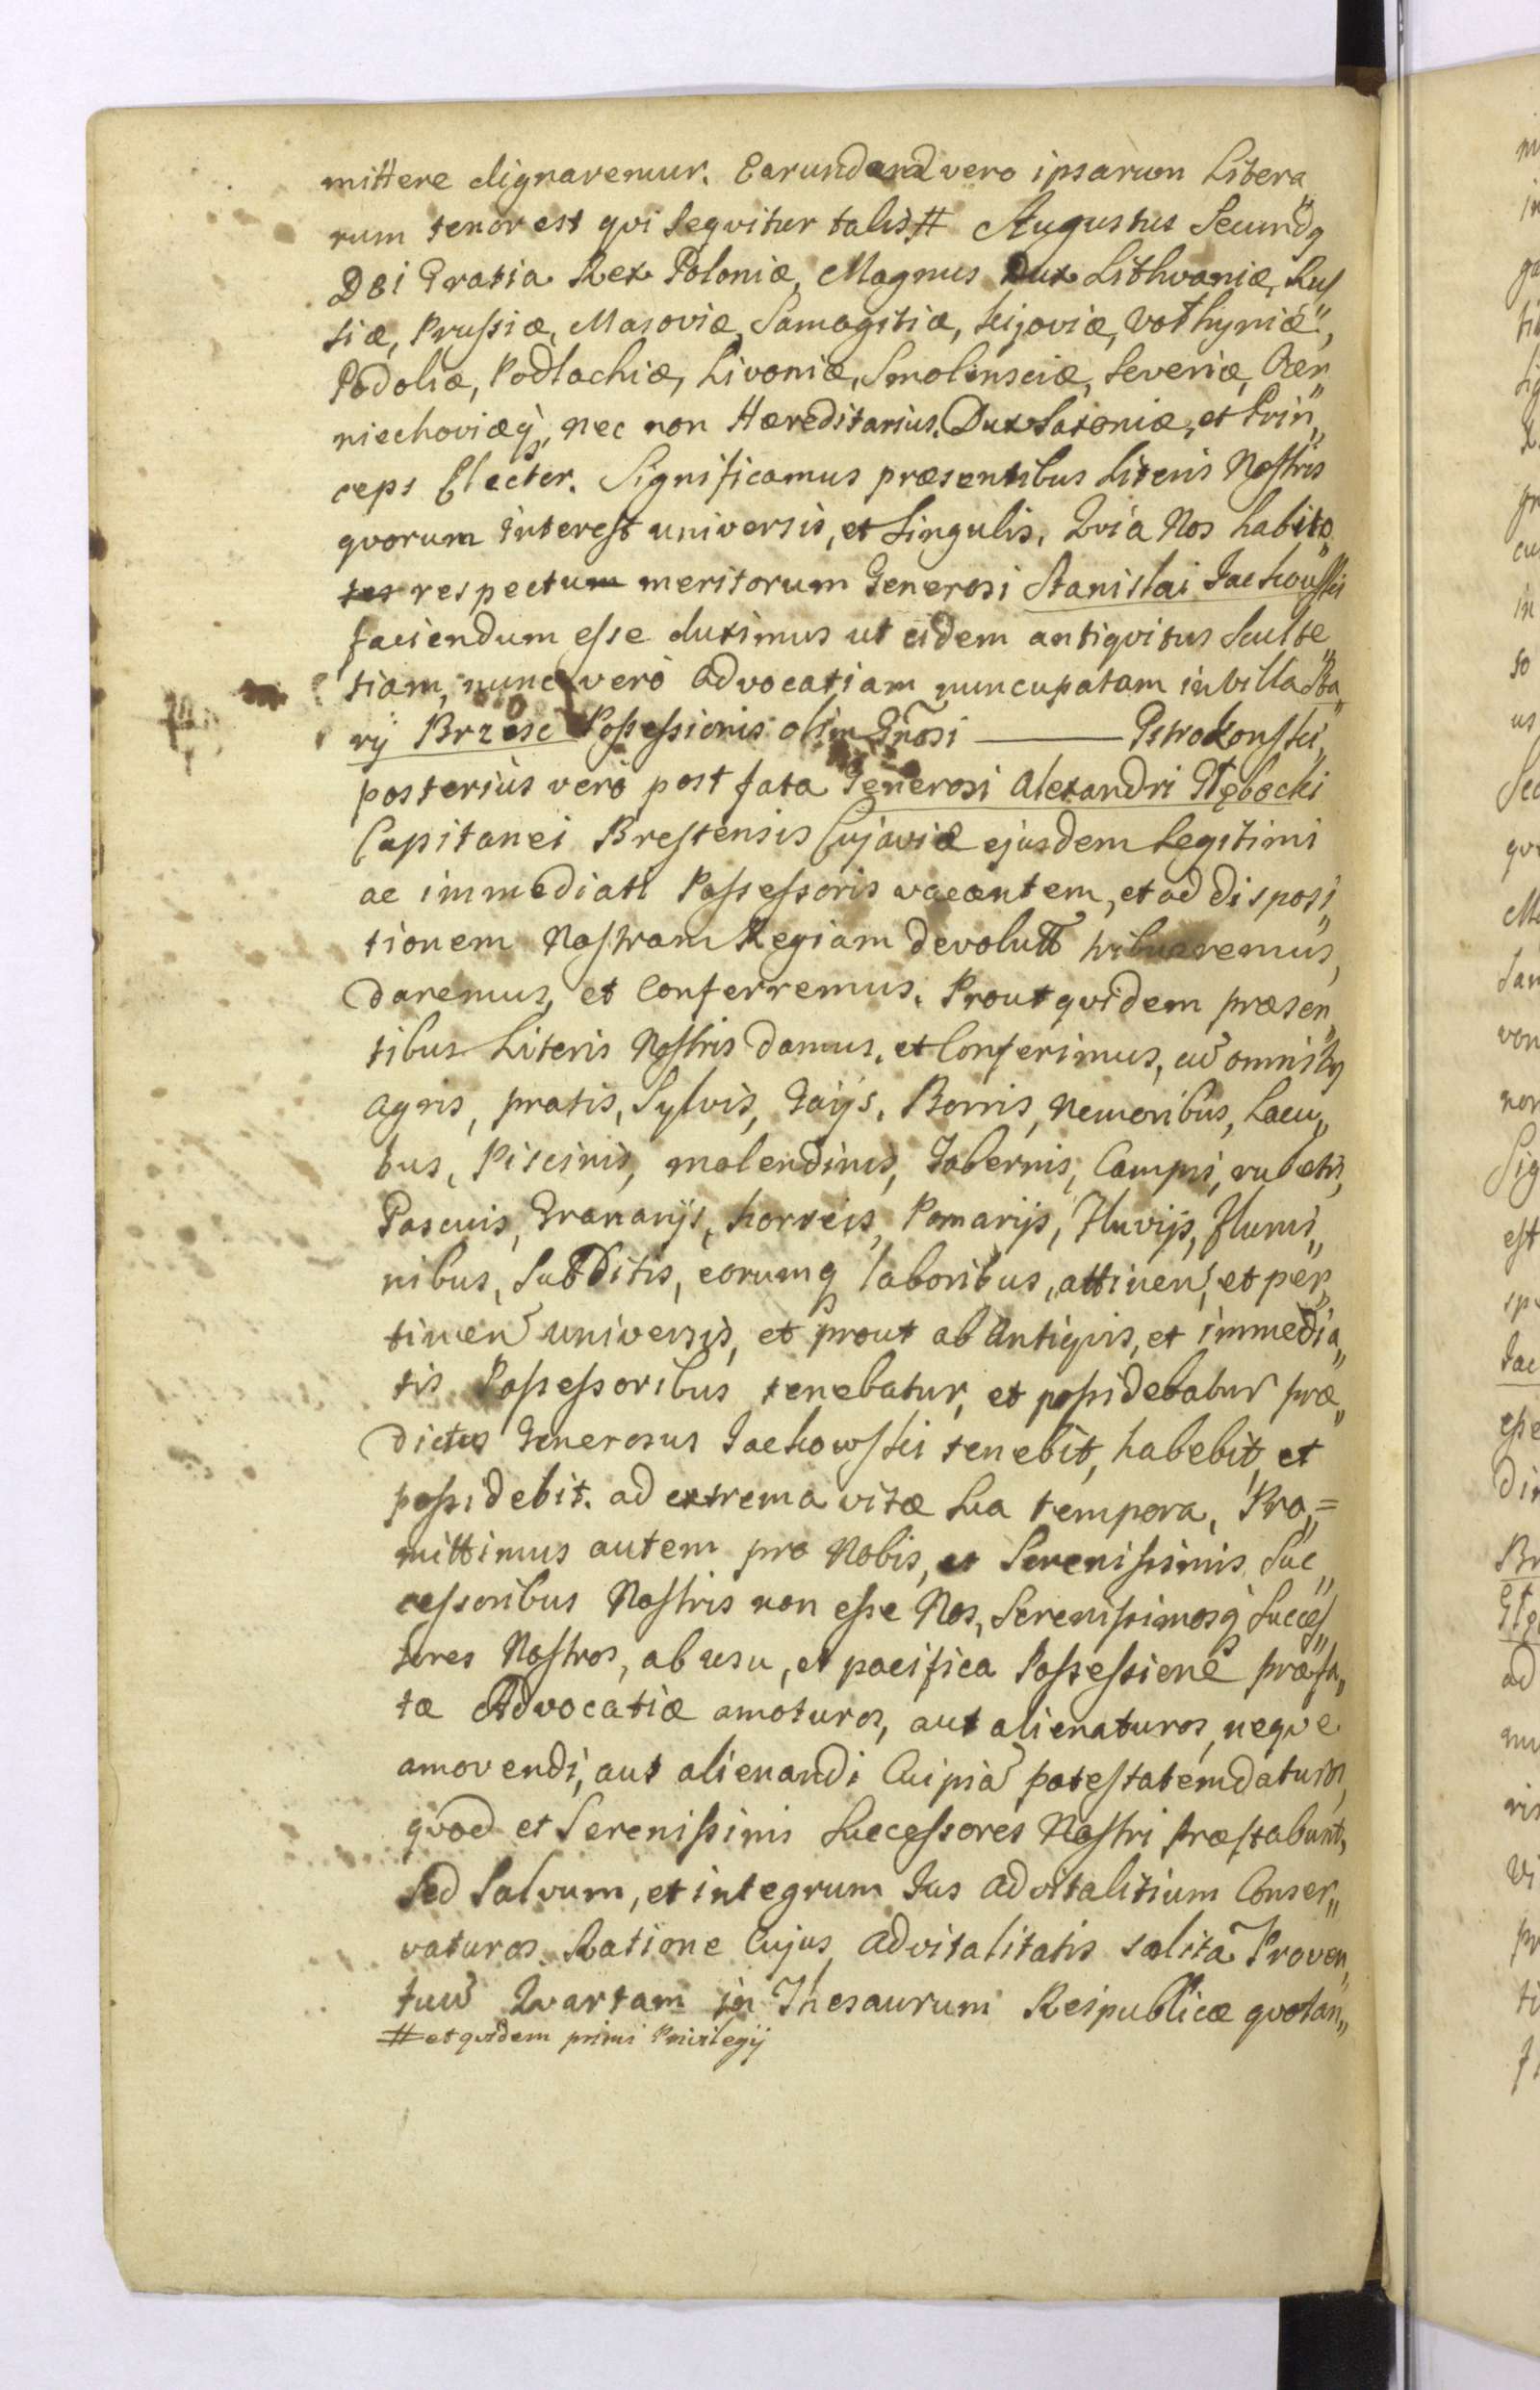 mittere dignaremur. Earundem vero ipsarum Litera„
rum tenor est qvi Seqvitur talis # Augustus Secundq
DEi Gratia Rex Poloniæ, Magnus Dux Lithvaniæ, Rus„
siæ, Prussiæ, Masoviæ, Samogitiæ, Kijoviæ, Vołhyniæ,
Podoliæ, Podlachiæ, Livoniæ, Smolensciæ, Severiæ, Czer„
niechoviæq, nec non Hæreditarius Dux Saxoniæ, et Prin„
ceps Elector. Significamus præsentibus Literis Nostris
qvorum interest universis, et Singulis, Qvia Nos habito
respectu meritorum Generosi Stanislai Jackowski
faciendum esse duximus ut eidem antiqvitus Sculte„
tiam, nunc vero Advocatiam nuncupatam in Villa Sta„
ry Brzesc Possessionis olim Gñosi ——— Pstrokonski,
posterius vero post fata Generosi Alexandri Głębocki
Capitanei Brestensis Cujaviæ ejusdem Legitimi
ac immediati Possessoris vacantem, et ad disposi„
tionem Nostram Regiam devolutã tribueremus,
daremus, et Conferremus. Prout qvidem præsen„
tibus Literis Nostris damus, et Conferimus, cũ omnibq
Agris, pratis, Sylvis, Gaijs, Borris, Nemoribus, Lacu„
bus, Piscinis, molendinis, Tabernis, Campis, rubetis,
Pascuis, Granarijs, horreis, Pomarijs, Fluvijs, flumi„
nibus, Subditis, eorumq laboribus, attinen, et per„
tinen universis, et prout ab Antiqvis, et immedia„
tis Possessoribus tenebatur, et possidebatur præ„
dictus Generosus Jackowski tenebit, habebit, et
possidebit ad extrema vitæ Sua tempora. Pro„=
mittimus autem pro Nobis, et Serenissimis Suc„
cessoribus Nostris non esse Nos, Serenissimosq Succes„
sores Nostros, ab usu, et pacifica Possessione præfa„
tæ Advocatiæ amoturos, aut alienaturos, neqve
amovendi, aut alienandi Cuipiã potestatem daturos,
qvod et Serenissimi Successores Nostri præstabunt,
Sed Salvum, et integrum Jus Advitalitium Conser„
vaturos. Ratione Cujus Advitalitatis solitã Proven„
tuũ Qvartam in Thesaurum Reipublicæ qvotan„
# et qvidem primi Privilegij